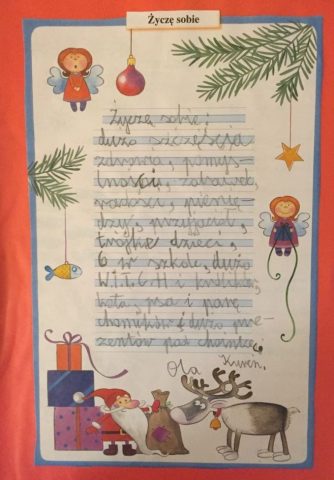 Życzę sobie
Życzę sobie:
dużo szczęścia
zdrowia, pomyś-
lności, zabawek,
radości, pienię-
dzy, przyjaciół,
trójkę dzieci,
6 w szkole, dużo
W.I.T.C.H i
kota, psa i parę
chomików i dużo pre-
zentów pod choinkę.
Ola